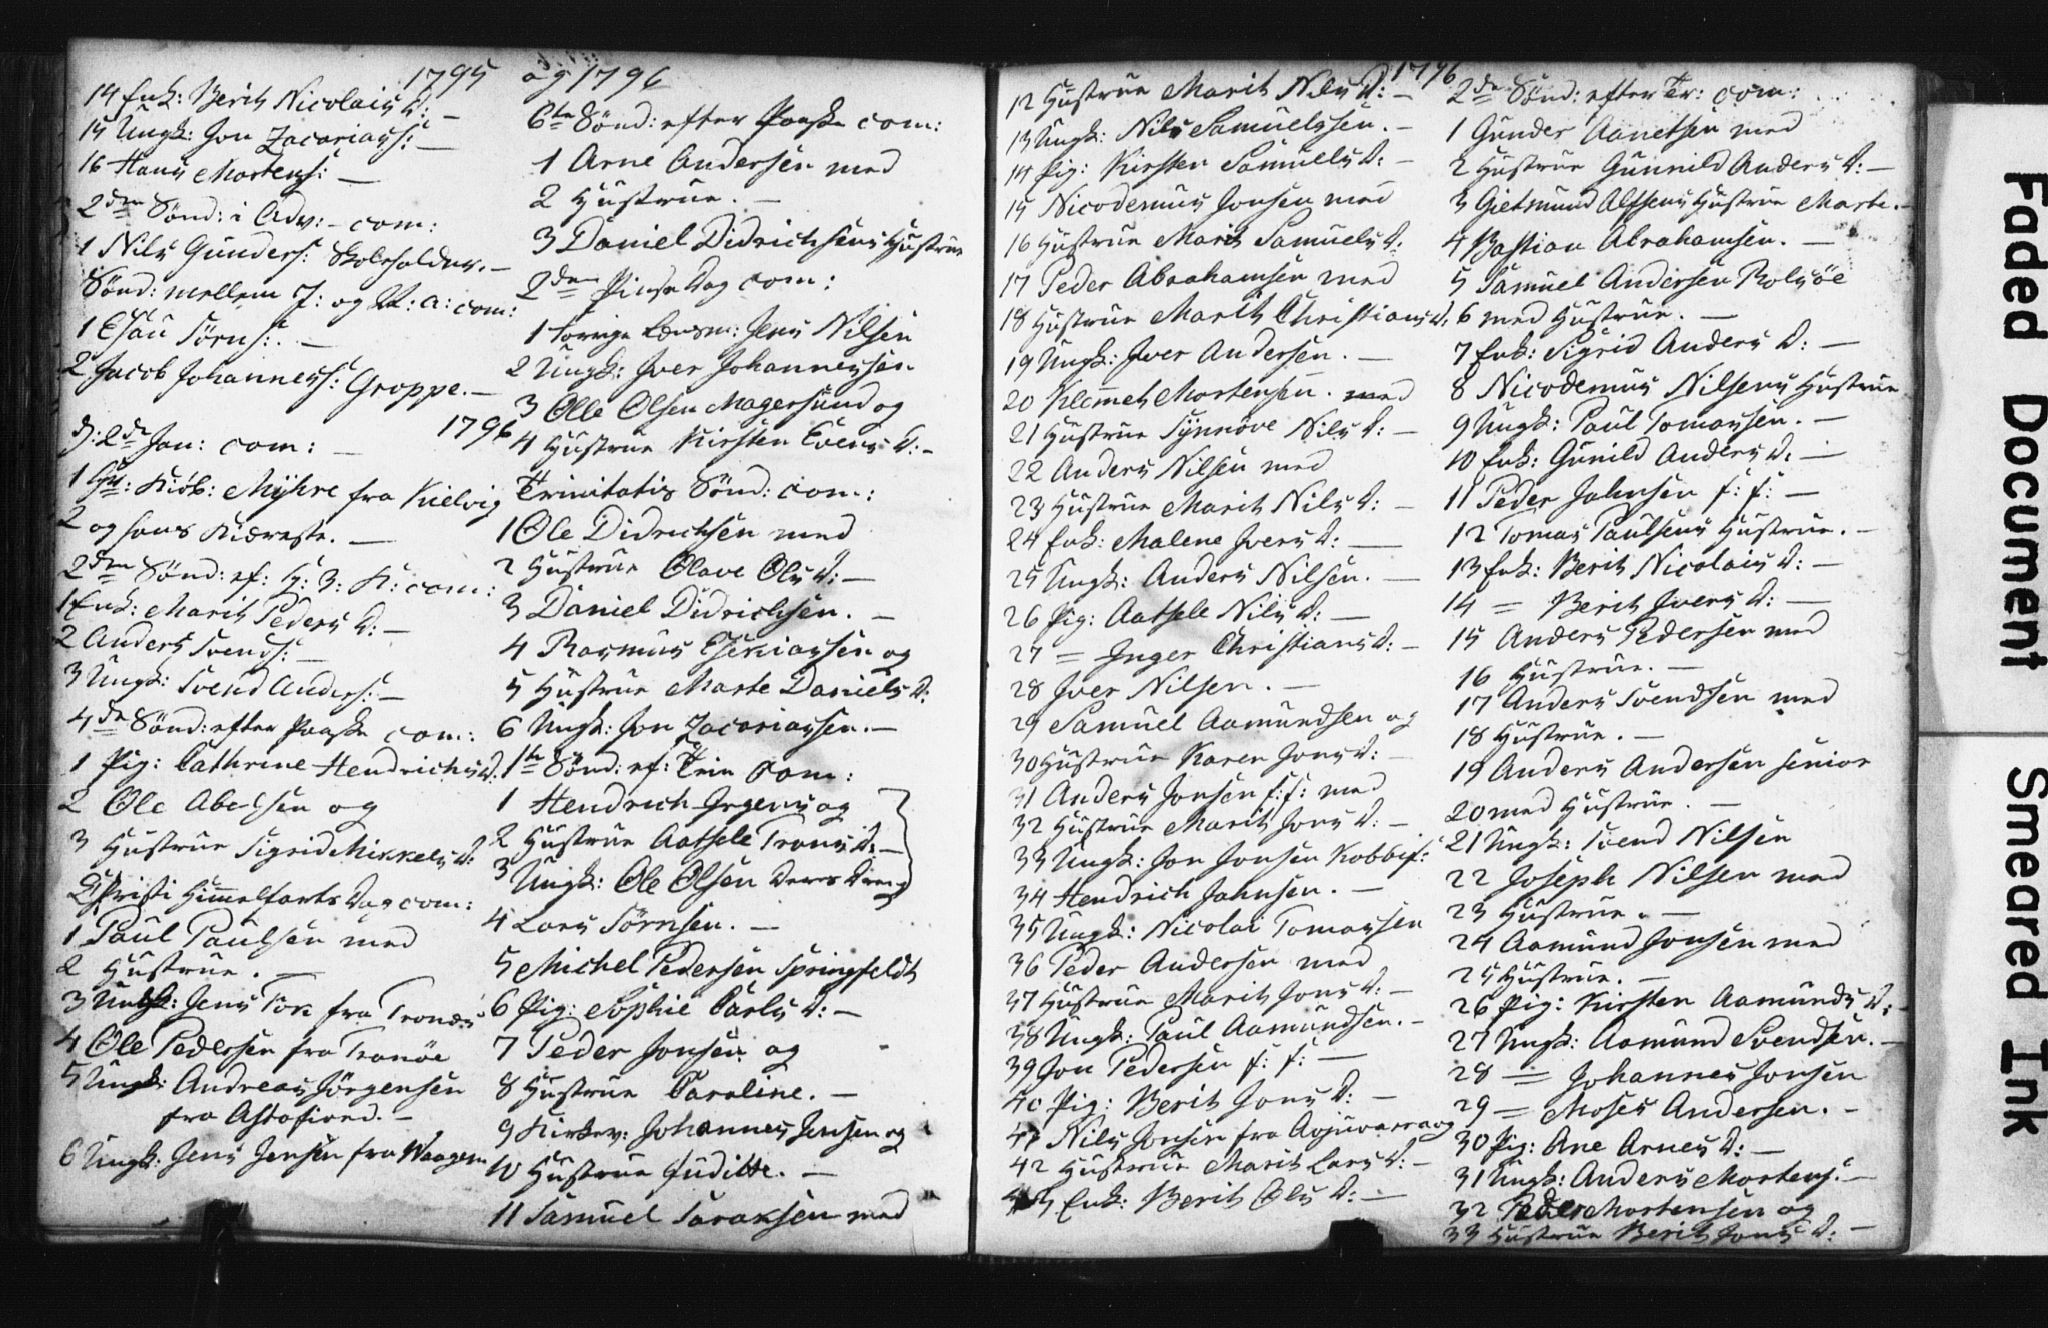 1795
14 Enk: Berit Nicolais D: —
15 Ungk: Jon Zacariass: —
16 Hans Mortens: —
2den Sønd: i Adv: – com:
1 Nils Gunders: Skoleholder. —
Sønd: mellem J: og N: a: com:
1 Esau Sörns: —
2 Jacob Johanness: Groppe. —
1796
D: 2de Jan: com: —
1 Hr: Kiöb: Myhre fra Kielvig
2 og hans Kiæreste. —
2den Sønd: ef: H: 3: K: com:
1 Enk: Marit Peders D: —
2 Anders Svends: —
3 Ungk: Svend Anders: —
4de Sønd: efter Paaske com:
1 Pig: Cathrine Hendrichs D:
2 Ole Abelsen og
3 Hustrue Sigrid Mikkels D:
Christi Himmelfarts Dag com:
1 Paul Paulsen med
2 Hustrue. —
3 Ungk: Jens Tok fra Tronds
4 Ole Pedersen fra Tranöe
5 Ungk: Andreas Jörgensen
fra Astafiord. —
6 Ungk: Jens Jensen fra Waagen
og 1796
6te Sønd: efter Paaske com:
1 Arne Andersen med
2 Hustrue. —
3 Daniel Didrichsens Hustrue
2den Pinse Dag com:
1 forrige Lensm: Jens Nilsen
2 Ungk: Iver Johannessen
3 Olle Olsen Magersund og
4 Hustrue Kirsten Evens D: —
Trinitatis Sønd: com:
1 Ole Didrichsen med
2 Hustrue Olave Ols D: —
3 Daniel Didrichsen. —
4 Rasmus Esekiassen og
5 Hustrue Marte Daniels D:
6 Ungk: Jon Zacariassen. —
1te Sønd: ef: Trin com:
1 Hendrich Irgens og
2 Hustrue Aatsele Trons D: —
3 Ungk: Ole Olsen deres Dreng
4 Lars Sörnsen. —
5 Michel Pedersen Springfeldt
6 Pig: Sophie Carls D: —
7 Peder Jonsen og
8 Hustrue Caroline. —
9 Kirkev: Johannes Jensen og
10 Hustrue Juditte. —
11 Samuel Saraksen med
1796
12 Hustrue Marit Nils D: —
13 Ungk: Nils Samuelssen. —
14 Pig: Kirsten Samuels D: —
15 Nicodemus Jonsen med
16 Hustrue Marit Samuels D:
17 Peder Abrahamsen med
18 Hustrue Marit Christians D:
19 Ungk: Iver Andersen. —
20 Klemet Mortensen. med
21 Hustrue Synnöve Nils D: —
22 Anders Nilsen med
23 Hustrue Marit Nils D: —
24 Enk: Malene Ivers D: —
25 Ungk: Anders Nilsen. —
26 Pig: Aatsele Nils D: —
27 = Inger Christians D: —
28 Iver Nilsen. —
29 Samuel Aamundsen og
30 Hustrue Karen Jons D: —
31 Anders Jonsen f: f: med
32 Hustrue Marit Jons D: —
33 Ungk: Jon Jonsen Kobbif:
34 Hendrich Jahnsen. —
35 Ungk: Nicolai Tomassen
36 Peder Andersen med
37 Hustrue Marit Jons D: —
38 Ungk: Paul Aamundsen. —
39 Jon Pedersen f: f: —
40 Pig: Berit Jons D: —
41 Nils Jonsen fra Avjuvarra og
42 Hustrue Marit Lars D: —
43 Enk: Berit Ols D: —
2de Sønd: efter Tr: com:
1 Gunder Aanetsen med
2 Hustrue Gunnild Anders D: —
3 Gietmund Alfsens Hustrue Marte. —
4 Bastian Abrahamsen. —
5 Samuel Andersen Rolsöe
6 med Hustrue. —
7 Enk: Sigrid Anders D: —
8 Nicodemus Nilsens Hustrue
9 Ungk: Paul Tomassen. —
10 Enk: Gunild Anders D: —
11 Peder Jahnsen f: f: —
12 Tomas Paulsens Hustrue. —
13 Enk: Berit Nicolais D: —
14 = Berit Ivers D: —
15 Anders Pedersen med
16 Hustrue. —
17 Anders Svendsen med
18 Hustrue. —
19 Anders Andersen senior
20 med Hustrue. —
21 Ungk: Svend Nilsen
22 Joseph Nilsen med
23 Hustrue. —
24 Aamund Jonsen med
25 Hustrue. —
26 Pig: Kirsten Aamunds D: —
27 Ungk: Aamund Svendsen. —
28 = Johannes Jonsen
29 = Moses Andersen. —
30 Pig: Ane Arnes D: —
31 Ungk: Anders Mortens: —
32 Peder Mortensen og
33 Hustrue Berit Jons D: —
Faded Document Smeared Ink